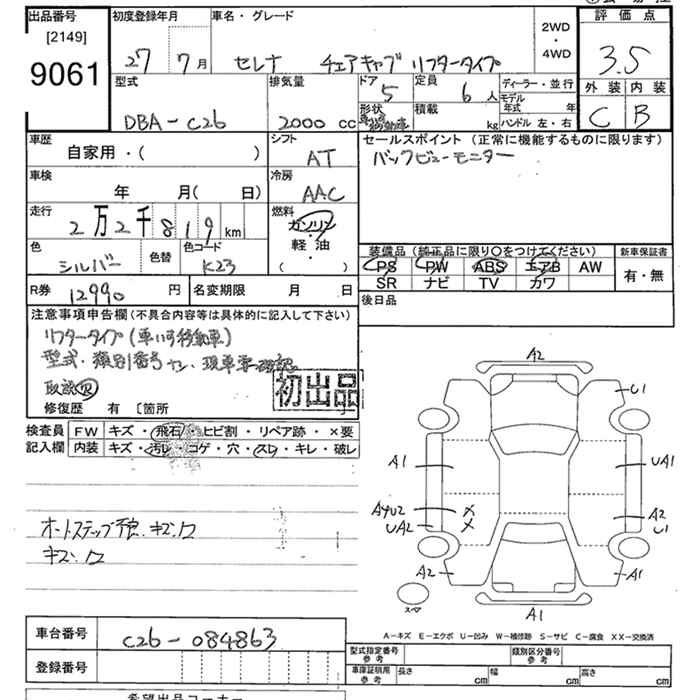 出品番号
[2149]
9061
初度登録年月
27年 7月
車名・グレード
セレナ チェアキャブ リフタータイプ
2WD
・
4WD
評価点
3.5
外装 内装
C B
型式
DBA-C26
排気量
2000 cc
ドア
5
形状
定員
6人
積載
kg
ディーラー・並行
モデル年式 年
ハンドル 左・右
車歴
自家用・( )
シフト
AT
セールスポイント(正常に機能するものに限ります)
バックビューモニター
車検
年 月( 日)
冷房
AAC
走行
2万2千819km
燃料
ガソリン
・
軽油
( )
色
シルバー
色替
色コード
K23
装備品(純正品に限り○をつけてください)
PS PW ABS エアB AW
SR ナビ TV カワ
新車保証書
有・無
R券
12990円
名変期限 月 日
後日品
注意事項申告欄(不具合内容等は具体的に記入して下さい)
リフタータイプ(車いす移動車)
型式・類別番号ナシ・現車要確認
取説
初出品
修復歴 有 〔箇所
検査員
記入欄
FW キズ・飛石・ヒビ割・リペア跡・×要
内装 キズ・汚レ・コゲ・穴・スレ・キレ・破レ
オートステップ
キズ.
A2
U1
A1
UA1
AYU2
UA2
A2
U1
A2
A1
スペア
A1
A-キズ E-エクボ U-凹み W-補修跡 S-サビ C-腐食 XX-交換済
車台番号
C26-084863
登録番号
型式指定番号
参考
類別区分番号
参考
車庫証明用
参考
長さ cm
幅 cm
高さ cm
希望出品コーナー